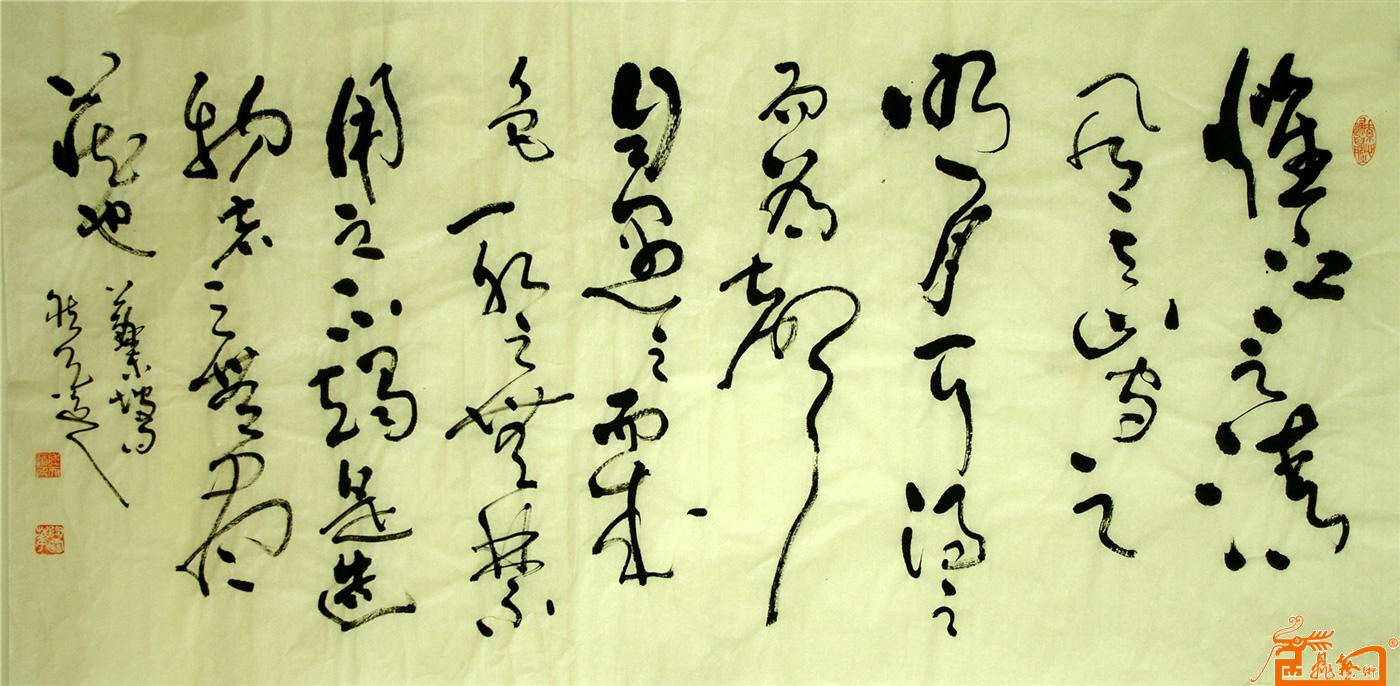 惟江之清
風與山間之
明月耳得之
而為聲
目遇之而成
色取之無禁
用之不竭是造
物者之無盡
藏也
蘇東坡句